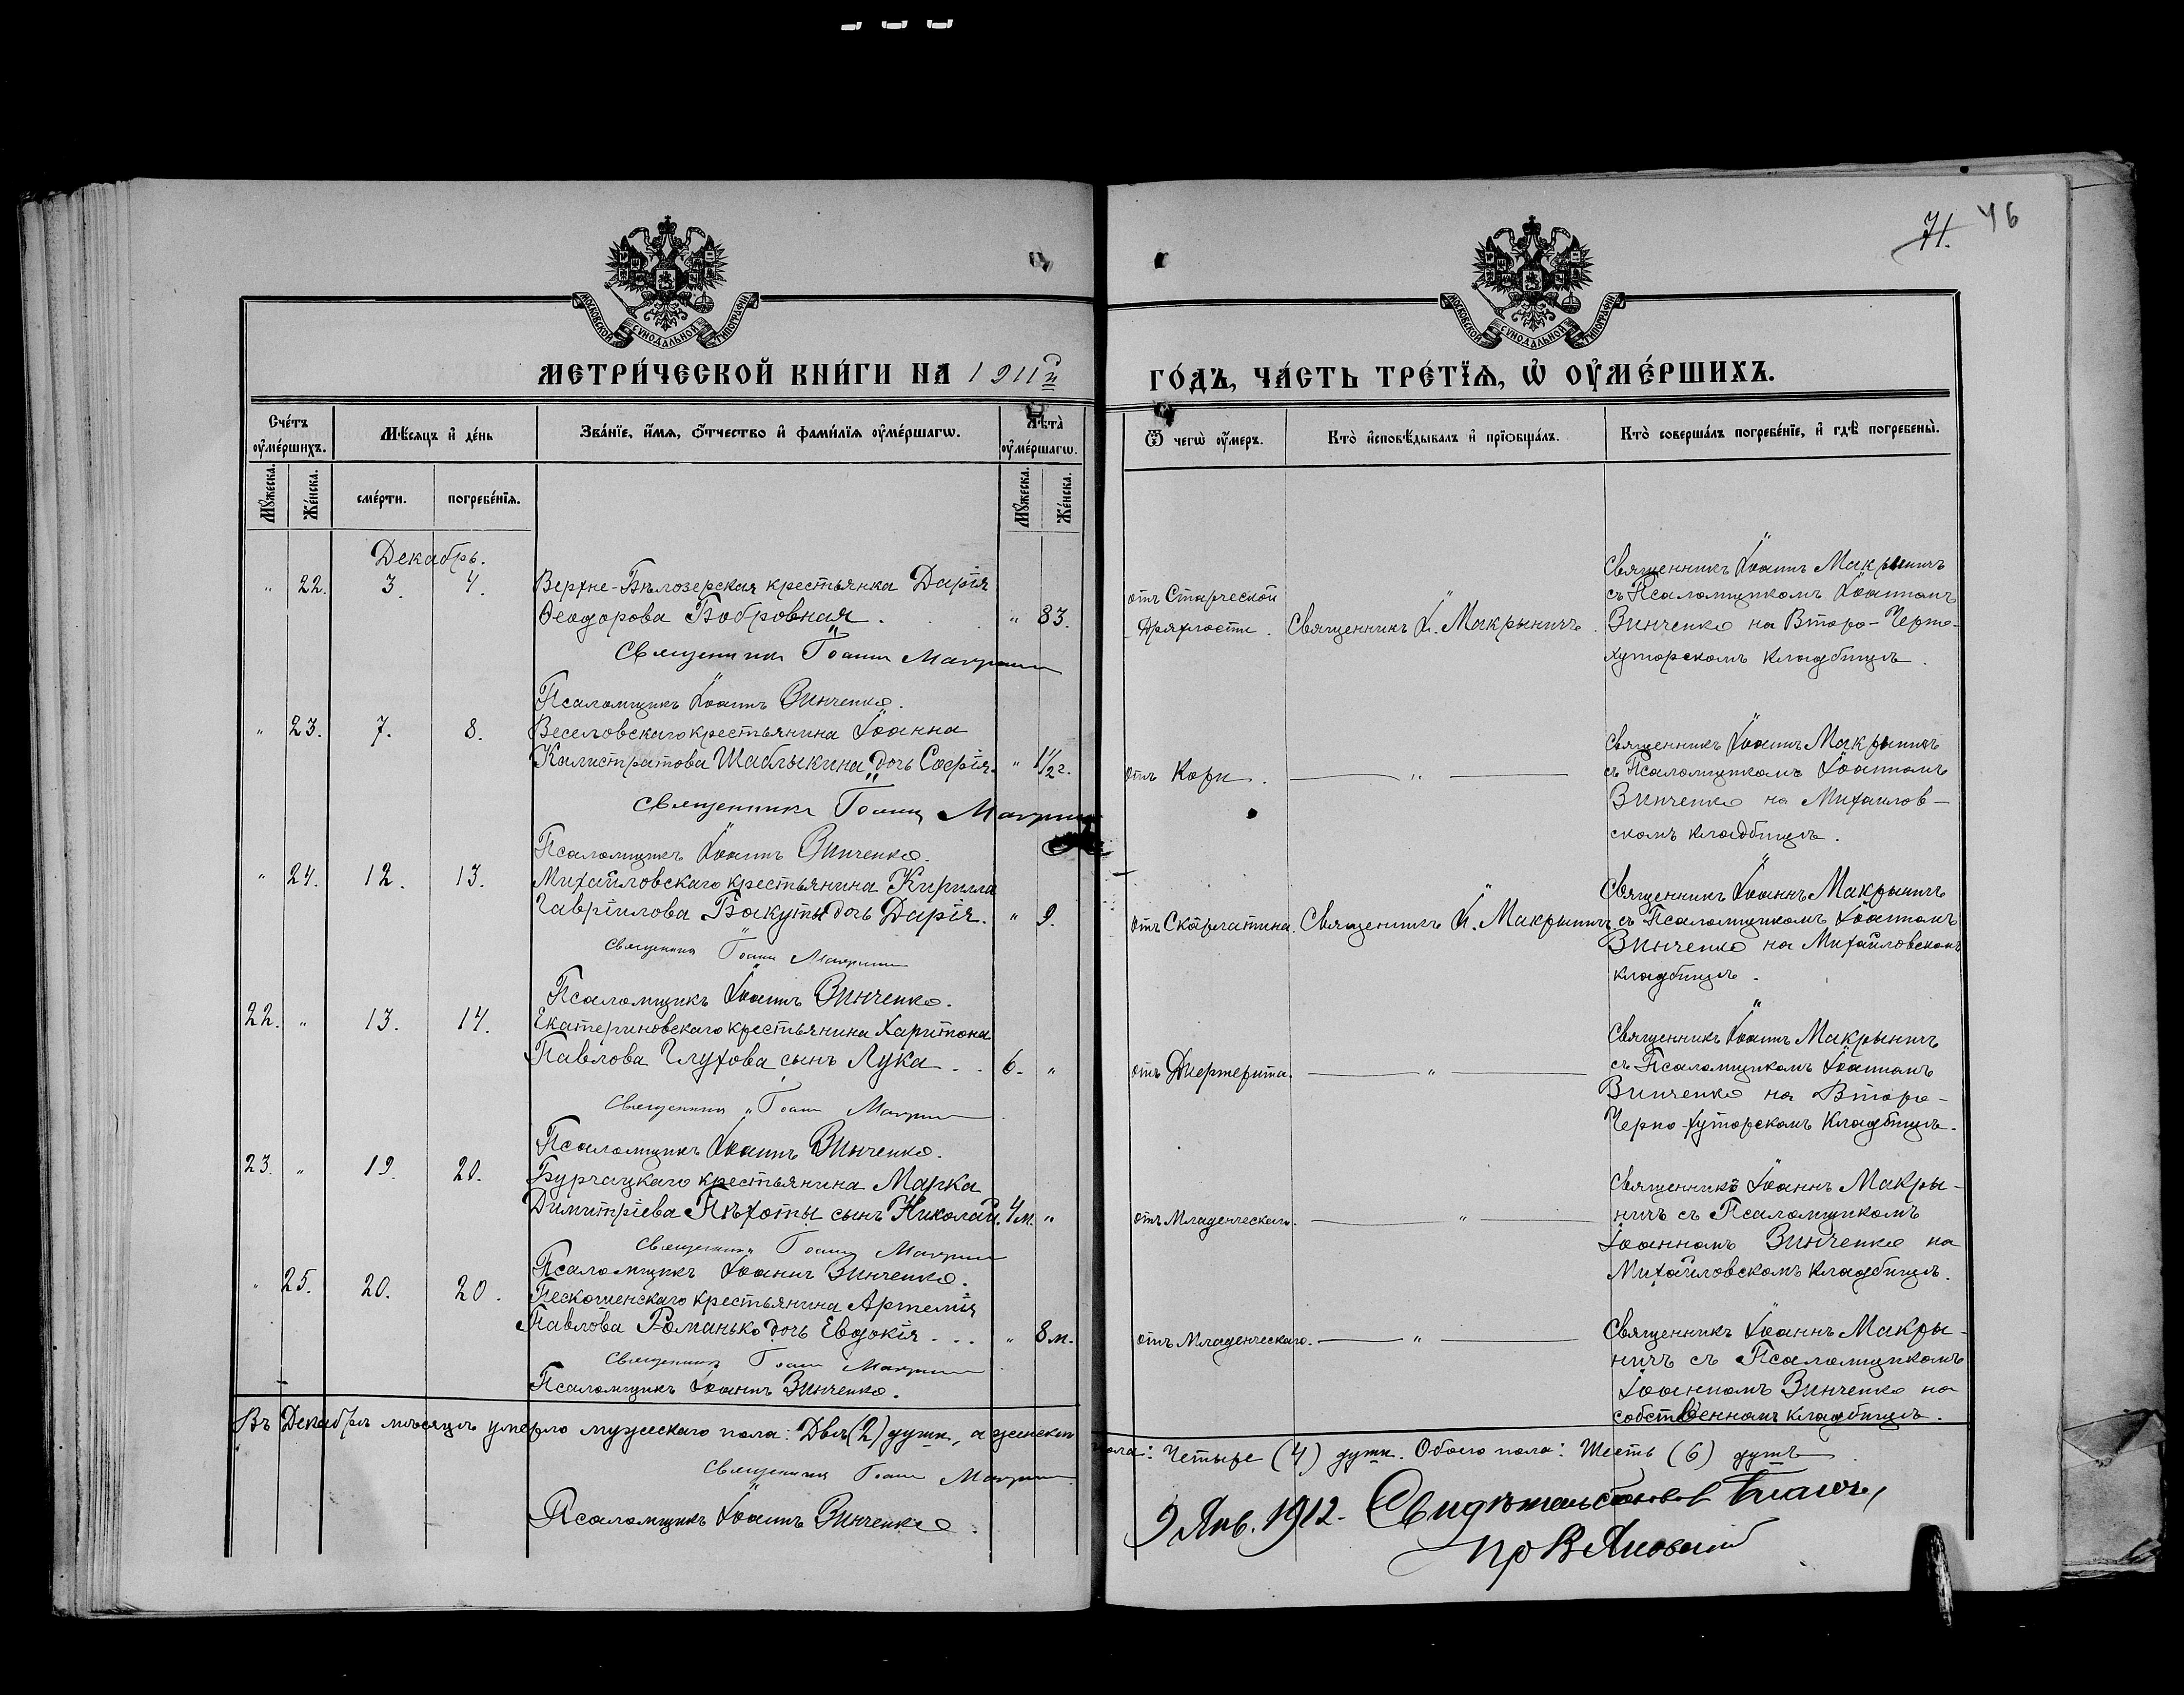 71. 46
МОСКОВСКОЙ СУНОДАЛЬНОЙ ТИПОГРАФІИ
МОСКОВСКОЙ СУНОДАЛЬНОЙ ТИПОГРАФІИ
МЕТРИ́ЧЕСКОЙ КНИ́ГИ НА 1911й
ГО́ДЪ, ЧА́СТЬ ТРЕ́ТЇѦ, Ѡ҆ ОУ҆МЕ́РШИХЪ.
Сче́тъ оу҆ме́ршихъ.
Мѣ́сѧцъ и҆ де́нь
Зва́нїе, и҆́мѧ, ѻ҆́тчество и҆ фами́лїѧ оу҆ме́ршагѡ.
Лѣ́та оу҆ме́ршагѡ.
Ѿ чегѡ̀ оу҆́меръ.
Кто̀ и҆сповѣ́дывалъ и҆ прїѡбща́лъ.
Кто̀ соверша́лъ погребе́нїе, и҆ гдѣ̀ погребены̀.
Мꙋ́жеска.
Же́нска.
сме́рти.
погребе́нїѧ.
Мꙋ́жеска.
Же́нска.
Декабрь.
" 22. 3. 4. Верхне-Бѣлозерская крестьянка Дарія
Ѳеодорова Бобровная . . " 83.
Священникъ Іоаннъ Макрыничъ
Псаломщикъ Іоаннъ Винченко.
отъ Старческой
Дряхлости. Священникъ І. Макрыничъ.
Священникъ Іоаннъ Макрыничъ
съ Псаломщикомъ Іоанномъ
Винченко на Второ-Черно-
хуторскомъ кладбищѣ.
" 23. 7. 8. Веселовскаго крестьянина Іоанна
Калистратова Шаблыкина дочь Софія. " 1 1/2 г.
Священникъ Іоаннъ Макрыничъ
Псаломщикъ Іоаннъ Винченко.
отъ Кори. "
Священникъ Іоаннъ Макрыничъ
съ Псаломщикомъ Іоанномъ
Винченко на Михайлов-
скомъ кладбищѣ.
" 24. 12. 13. Михайловскаго крестьянина Кирилла
Гавріилова Бакуты дочь Дарія. " 9.
Священникъ Іоаннъ Макрыничъ
Псаломщикъ Іоаннъ Винченко.
отъ Скарлатина. Священникъ І. Макрыничъ
Священникъ Іоаннъ Макрыничъ
съ Псаломщикомъ Іоанномъ
Винченко на Михайловскомъ
кладбищѣ.
22. " 13. 14. Екатериновскаго крестьянина Харитона
Павлова Глухова сынъ Лука . . 6. "
Священникъ Іоаннъ Макрыничъ
Псаломщикъ Іоаннъ Винченко.
отъ Дифтерита. "
Священникъ Іоаннъ Макрыничъ
съ Псаломщикомъ Іоанномъ
Винченко на Второ-
Черно-хуторскомъ Кладбищѣ.
23. " 19. 20. Бурчацкаго крестьянина Марка
Димитріева Пѣхоты сынъ Николай. 4 м. "
Священникъ Іоаннъ Макрыничъ
Псаломщикъ Іоаннъ Винченко.
отъ Младенческаго. "
Священникъ Іоаннъ Макры-
ничъ съ Псаломщикомъ
Іоанномъ Винченко на
Михайловскомъ кладбищѣ.
" 25. 20. 20. Пескошенскаго крестьянина Артемія
Павлова Романько дочь Евдокія . . . " 8 м.
Священникъ Іоаннъ Макрыничъ
Псаломщикъ Іоаннъ Винченко.
отъ Младенческаго. "
Священникъ Іоаннъ Макры-
ничъ съ Псаломщикомъ
Іоанномъ Винченко на
собственномъ кладбищѣ.
Въ Декабрѣ мѣсяцѣ умерло мужескаго пола: Двѣ (2) души, а женскаго
пола: Четыре (4) души. Обоего пола: Шесть (6) душъ.
Священникъ Іоаннъ Макрыничъ
Псаломщикъ Іоаннъ Винченко.
9 Янв. 1912. Свидѣтельствовалъ Благоч.,